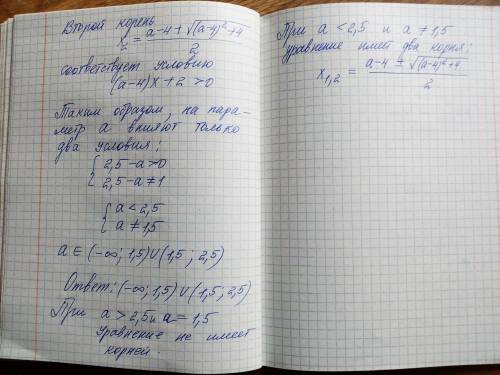 Второй корень
t = (a-4 ± √((a-4)²+4)) / 2
соответствует условию
(a-4)x+2>0
Таким образом, на пара-
метр a влияют только
два условия:
{ 2,5-a>0
{ 2,5-a≠1
{ a<2,5
{ a≠1,5
a∈(-∞; 1,5)∪(1,5; 2,5)
Ответ: (-∞; 1,5)∪(1,5; 2,5)
При a > 2,5 и a = 1,5
уравнение не имеет
корней.
При a < 2,5 и a ≠ 1,5
уравнение имеет два корня:
x₁,₂ = (a-4 ± √((a-4)²+4)) / 2